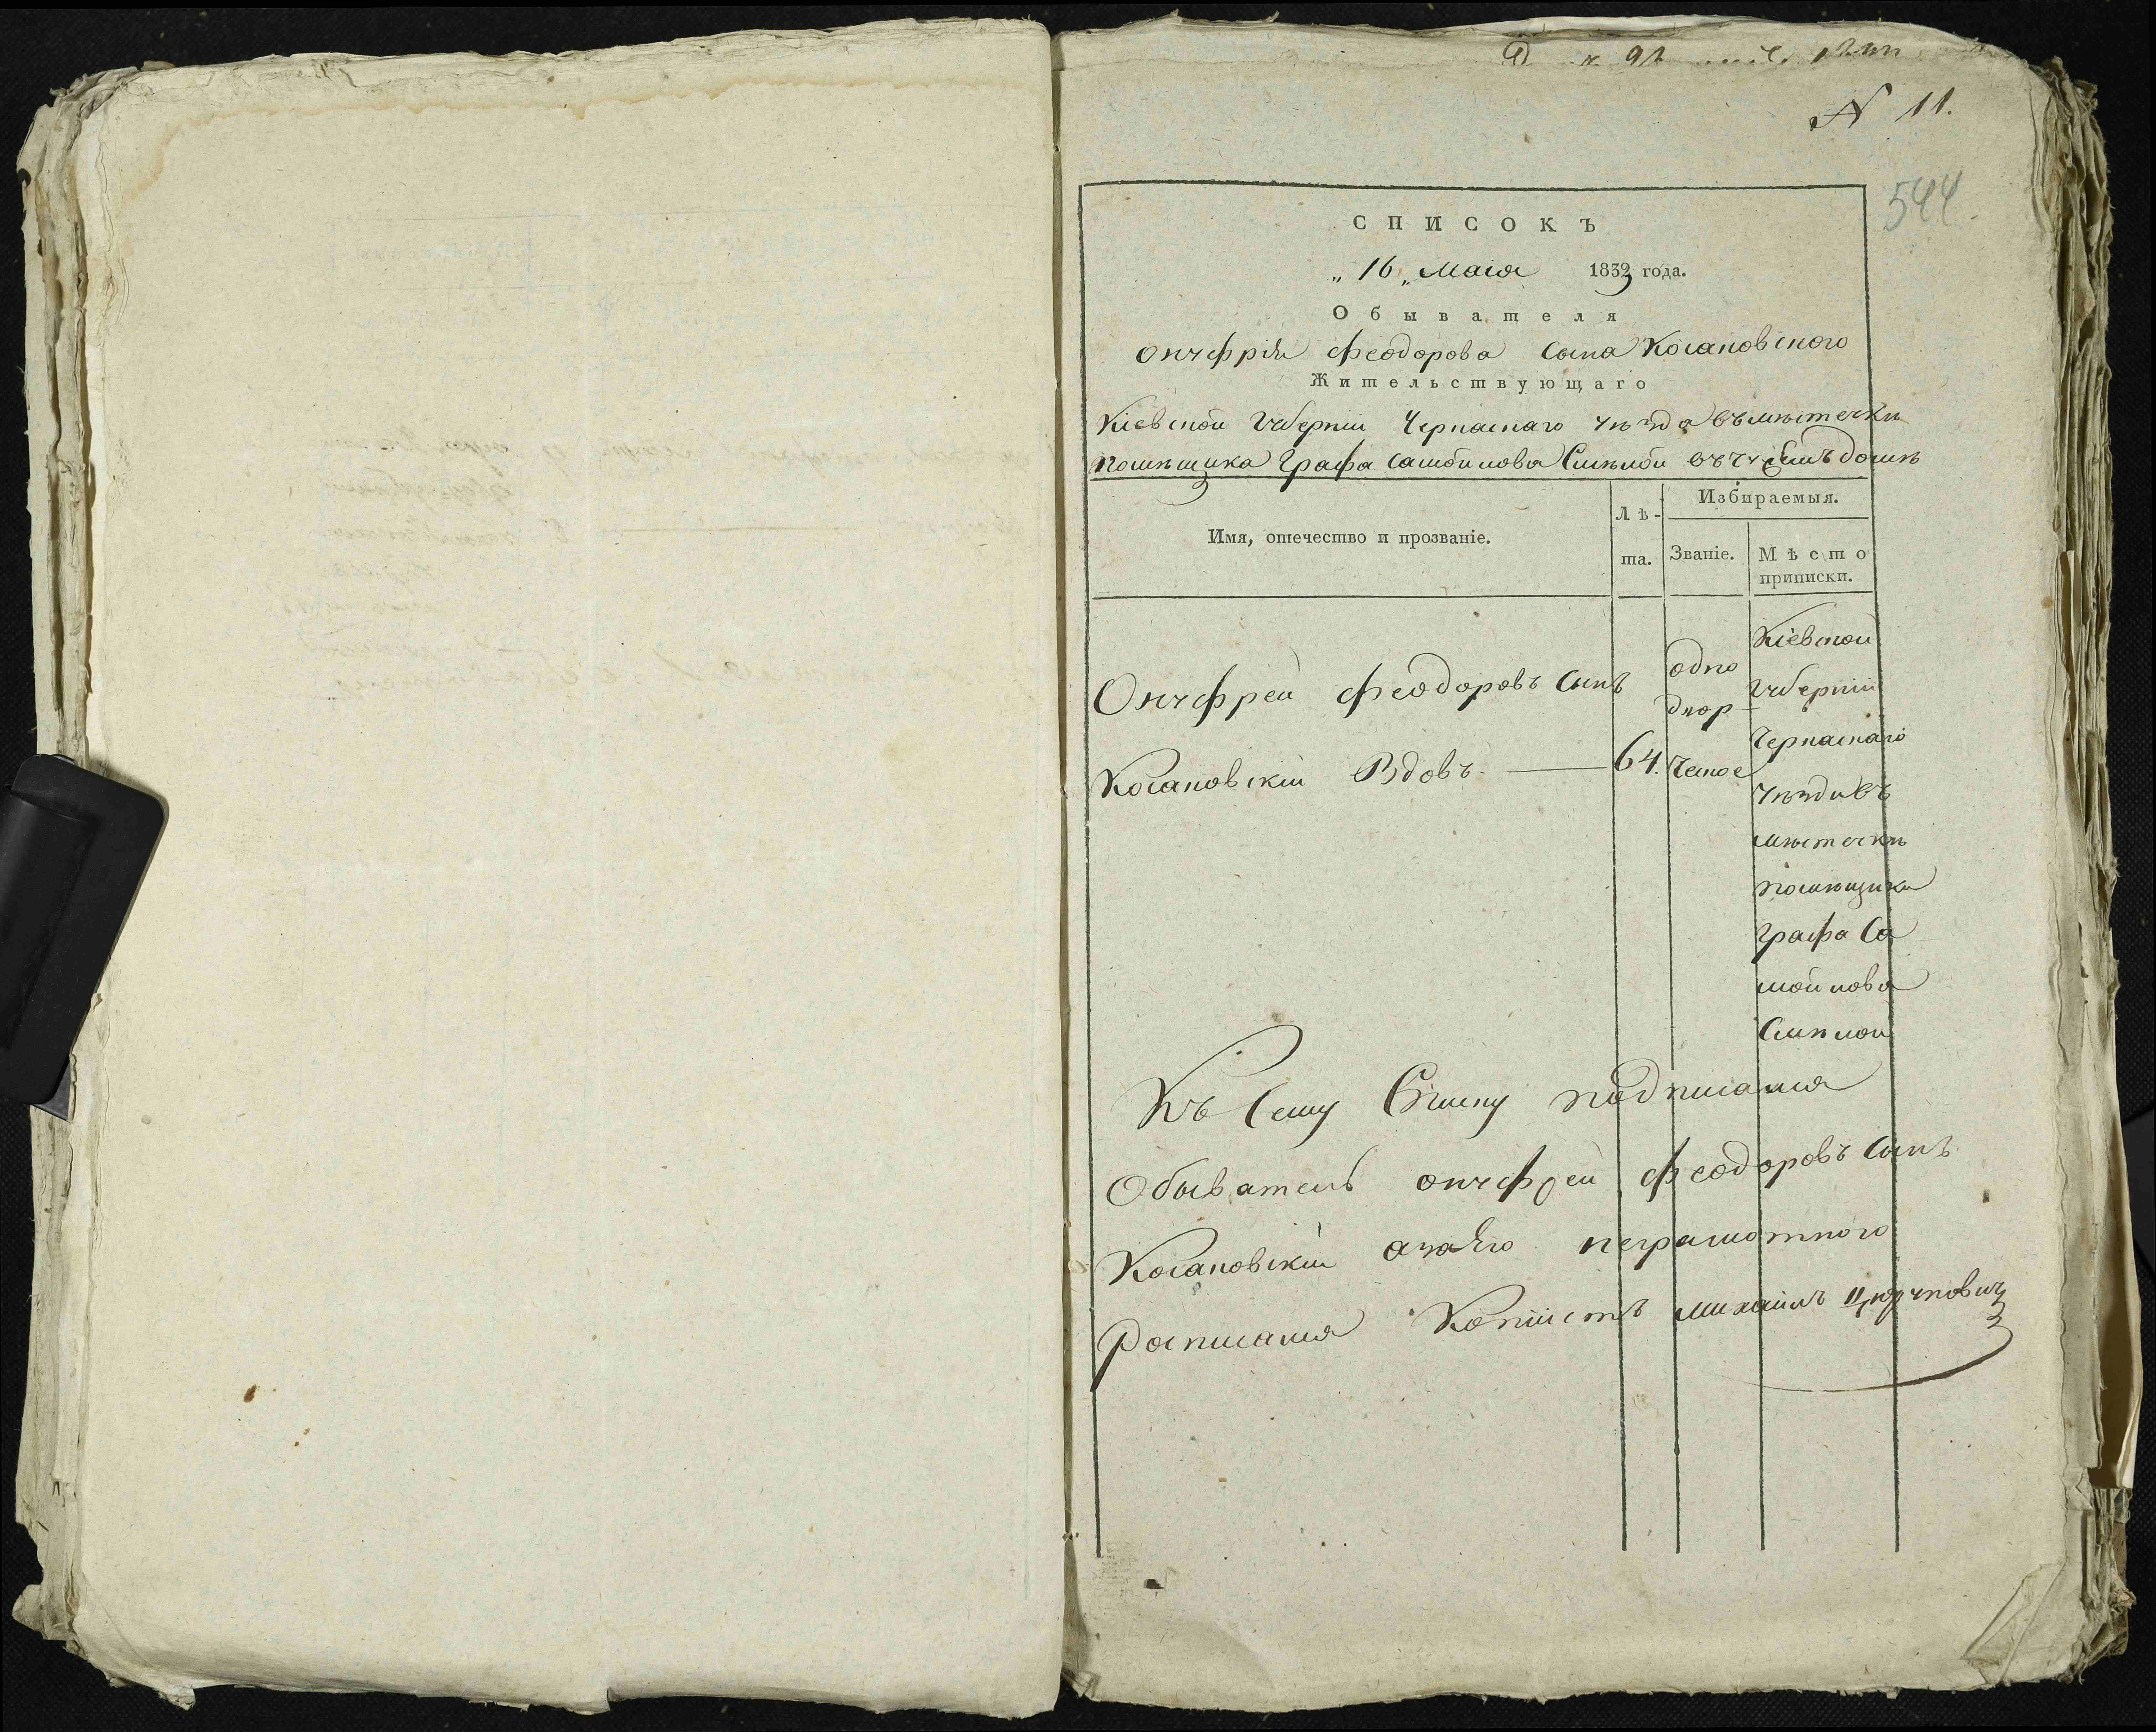 N 11.
544.
СПИСОКЪ
„16„ Маія 1833 года.
Обывателя
Онуфрія Феодорова сына Косановского
Жительствующаго
Кіевской Губерніи Черкаскаго уѣзда въ мѣстечкѣ
помѣщика Графа Самойлова Смѣлой въ домѣ
Имя, отечество и прозваніе.
Лѣ-
та.
Избираемыя.
Званіе.
Мѣсто
приписки.
Онуфрей Феодоровъ сынъ
Косановскій Вдовъ — 64.
одно
двор-
ческое
Кіевской
Губерніи
Черкаскаго
уѣзда въ
мѣстечкѣ
помѣщика
Графа Са
мойлова
Смѣлой
Къ сему Списку подписался
Обыватель Онуфрей Феодоровъ сынъ
Косановскій а за его неграмотного
Росписался Копіистъ Михаилъ